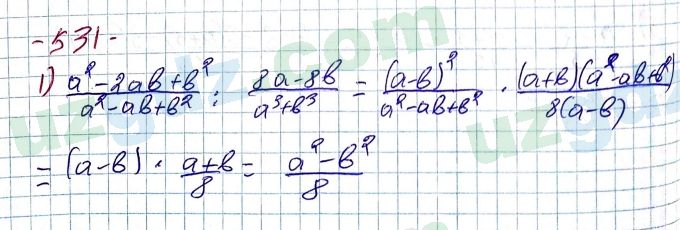 -531-
1) (a²-2ab+b²)/(a²-ab+b²) : (8a-8b)/(a³+b³) = (a-b)²/(a²-ab+b²) · (a+b)(a²-ab+b²)/8(a-b)
= (a-b) · (a+b)/8 = (a²-b²)/8